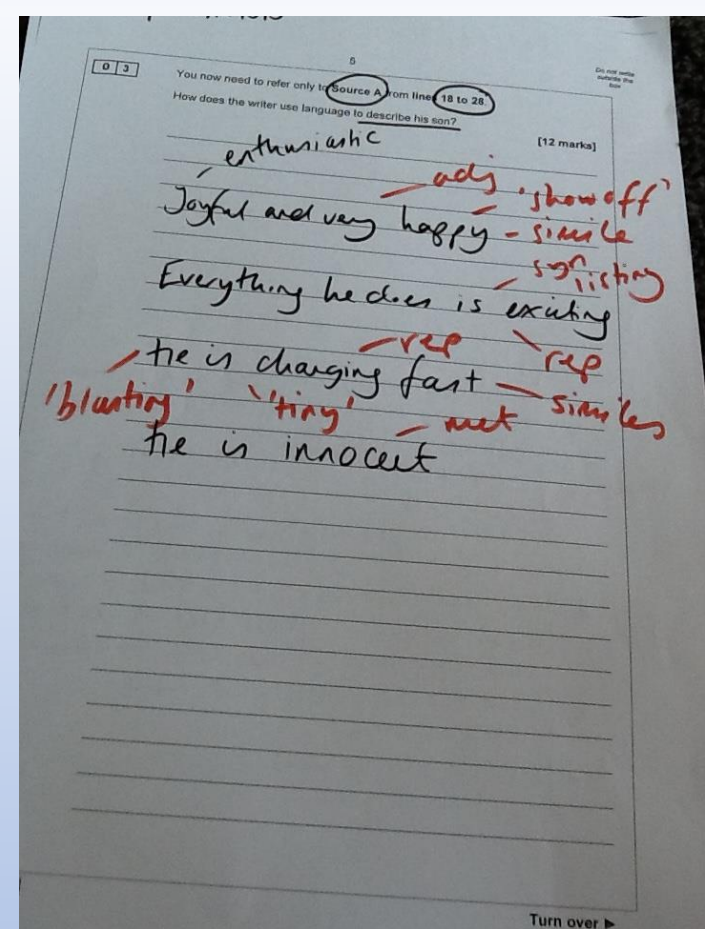 5
0 3
Do not write
outside the
box
You now need to refer only to Source A from lines 18 to 28.
How does the writer use language to describe his son?
[12 marks]
enthusiastic
adj 'show off'
Joyful and very happy - simile
syn listing
Everything he does is exciting
rep rep
He is changing fast similes
'blasting' 'tiny' met
He is innocent
Turn over ►